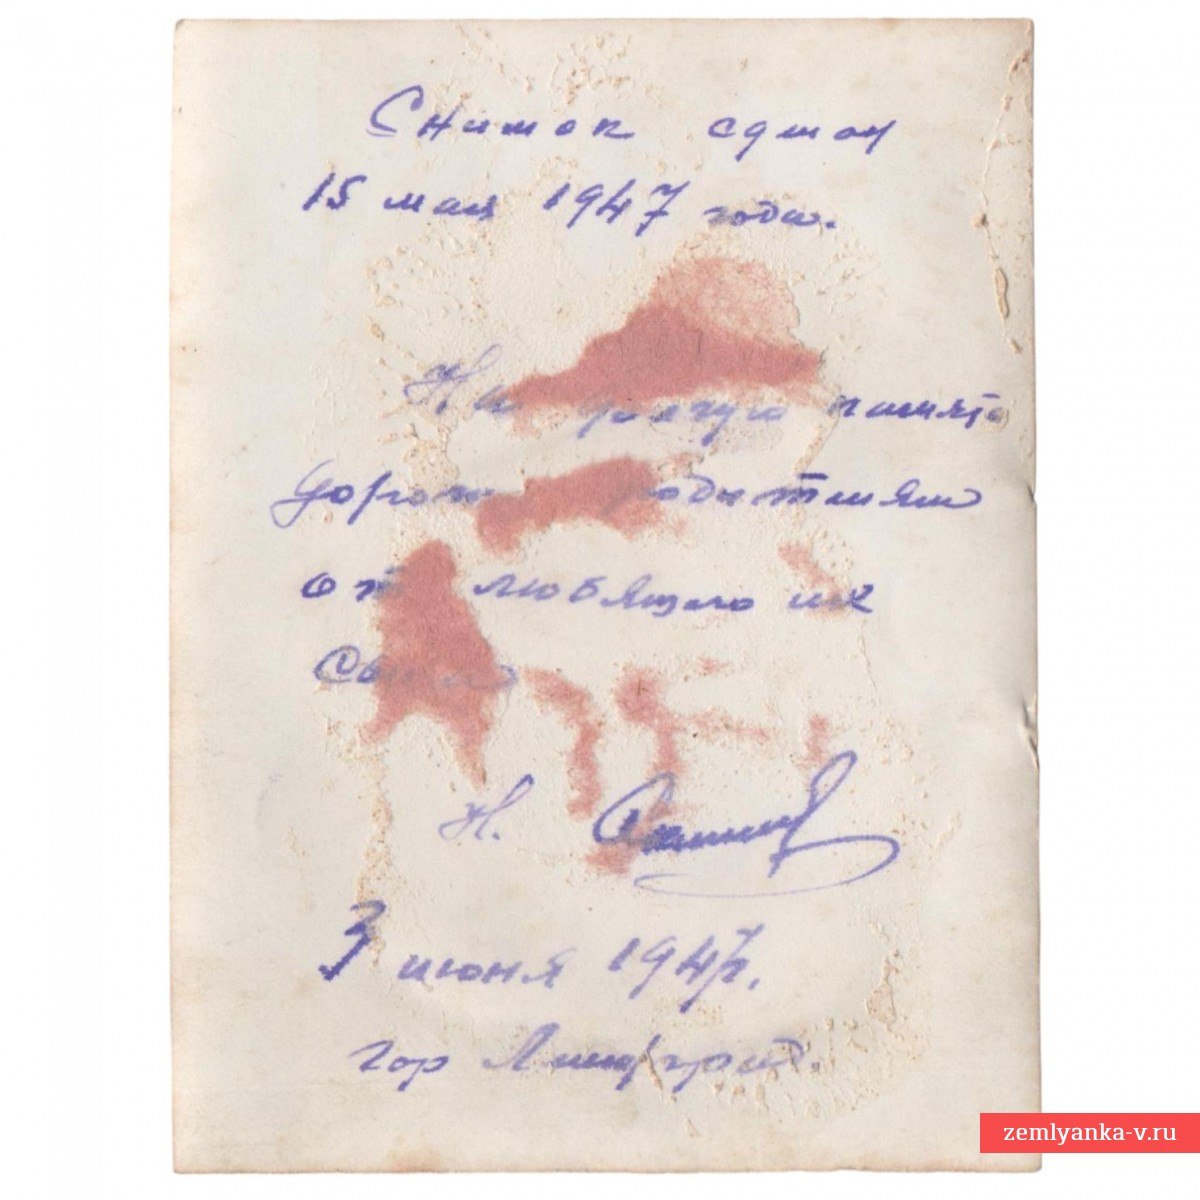 Снимок сделан
15 мая 1947 года.
На долгую память
дорогим родителям
от любящего их
Сына
Н.
3 июня 1947г.
гор Ленинград.
zemlyanka-v.ru